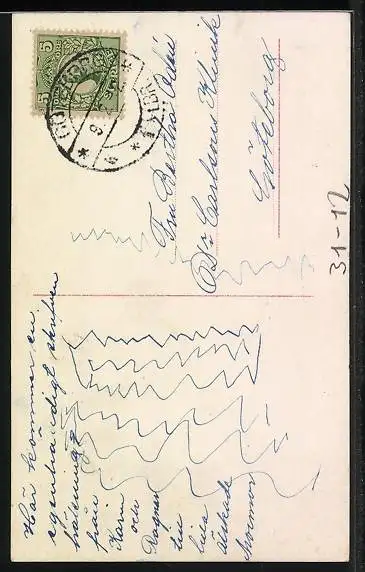 Fru Bertha Odén
Dr Carlsons Klinik
Göteborg
31-12
Här kommer en
egenhändigt skrifven
hälsning
från
Karin
och
Ragnar
till
lilla
älskade
Mormor
5
5